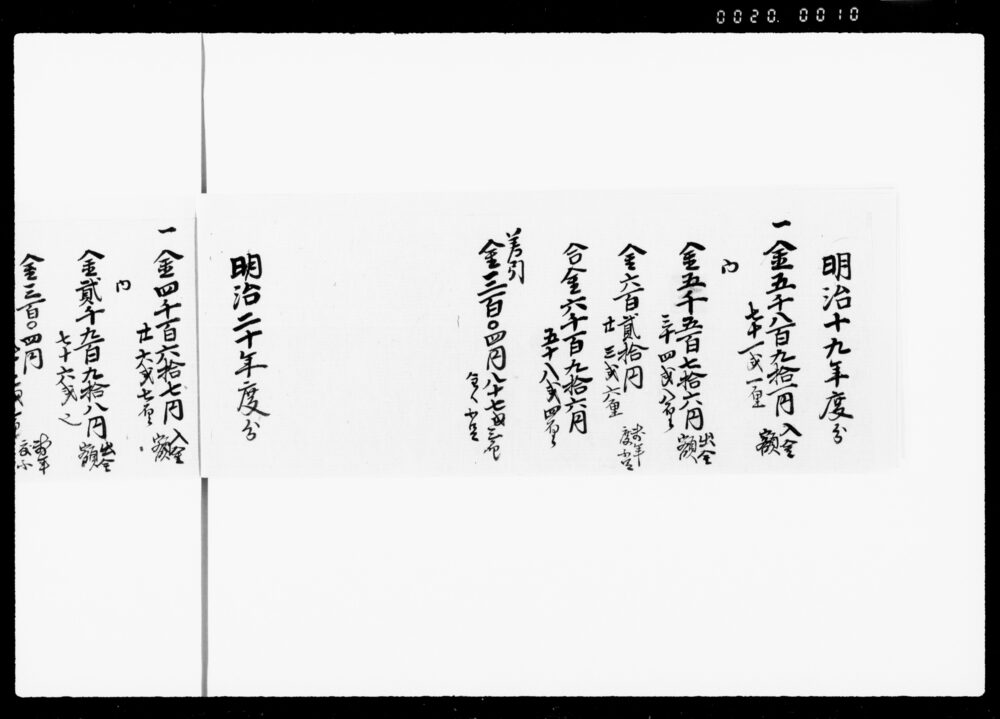 0020. 0010
明治十九年度分
一金五千八百九拾一円 入金額
七十一戋一厘
内
金五千五百七拾六円 出金額
三十四戋八厘
金六百貳拾円 前年度不足
廿三戋六厘
合金六千百九拾六円
五十八戋四厘
差引
金三百〇四円八十七戋三厘
全ク不足
明治二十年度分
一金四千百六拾七円 入金額
廿六戋七厘
内
金貳千九百九拾八円 出金額
七十六戋
金三百〇四円 前年度不